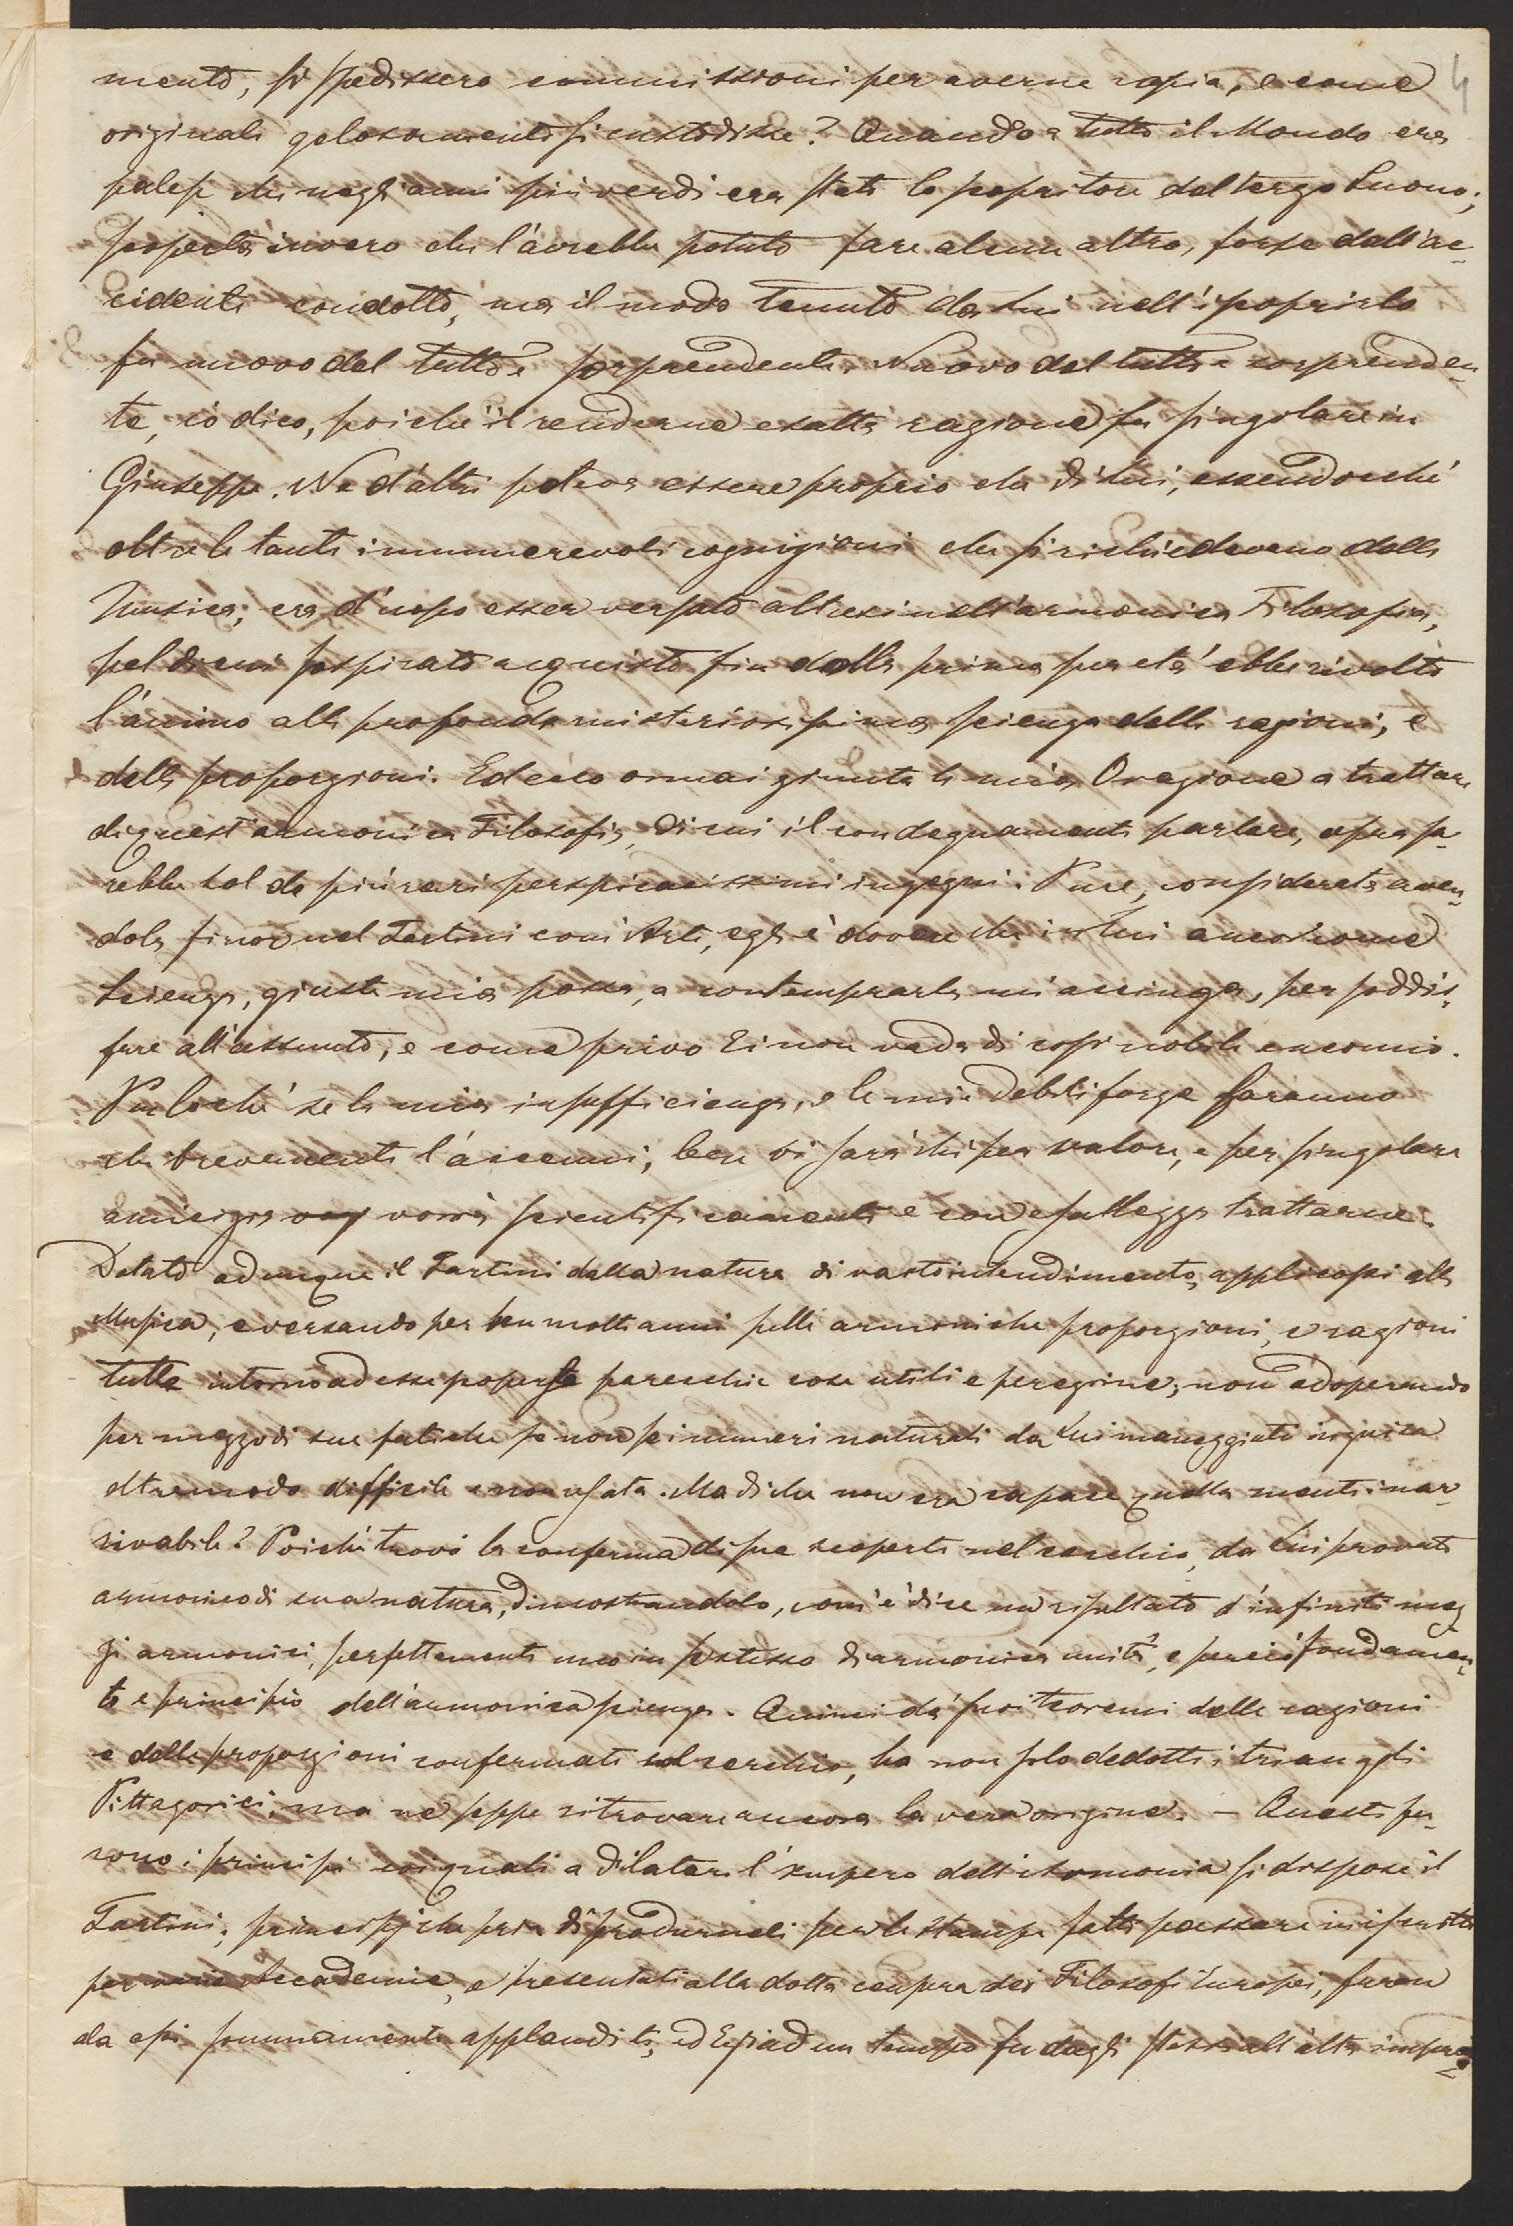 4
mento, si spedissero commissioni per averne copia, e come
originale gelosamente si custodisse? Quando a tutto il Mondo era
palese che negli anni più verdi era stato lo scopritore del terzo Suono;
scoperta invero che l'avrebbe potuto fare alcun altro, forse dall'ac-
cidente condotto, ma il modo tenuto da Lui nell'iscoprirlo
fu nuovo del tutto e sorprendente. Nuovo del tutto e sorprenden-
te, io dico, poichè il renderne esatta ragione fu singolare in
Giuseppe. Ne d'altri poteva essere proprio che di Lui, essendochè
oltre le tante innumerevoli cognizioni che si richiedevano dalla
Musica, era d'uopo esser versato altresì nell'armonica Filosofia,
pel di cui sospirato acquisto fin dalla prima sua età ebbe rivolto
l'animo alla profonda misteriosissima scienza delle ragioni, e
delle proporzioni. Ed ecco ormai giunta la mia Orazione a trattare
di quest'armonica Filosofia, di cui il condegnamente parlare, opra sa-
rebbe sol de più rari perspicacissimi ingegni. Pure, considerata aven-
dola finor nel Tartini com'Arte, egli è dovere che in Lui ancor come
Scienza, giusta mia possa, a contemprarla mi accinga, per soddis-
fare all'assunto, e come privo Ei non vada di così nobile encomio.
Perlochè se la mia insufficienza, e le mie debili forze faranno
che brevemente l'accenni, ben vi sarà chi per valore, e per singolare
amicizia vorrà scientificamente e con esattezza trattarne.
Dotato adunque il Tartini dalla natura di vasto intendimento, applicossi alla
Musica, e versando per ben molti anni sulle armoniche proporzioni, e ragioni
tutte intorno ad esse scoperse parecchie cose utili e peregrine, non adoperando
per mezzo di sue fatiche se non sei numeri naturali da Lui maneggiati in guisa
oltremodo difficile e non usata. Ma di che non era capace quella mente inar-
rivabile? Poichè trovò la conferma di sue scoperte nel cerchio, da Lui provato
armonico di sua natura, dimostrandolo, com'è dire un risultato d'infiniti mez-
zi armonici, perfettamente uno in se stesso di armonica unità, e perciò fondamen-
to e principio dell'armonica scienza. Quinci da' suoi teoremi delle ragioni
e delle proporzioni confermati sul cerchio, ha non solo dedotti i triangoli
Pittagorici, ma ne seppe ritrovare ancora la vera origine. – Questi fu-
rono i principi coi quali a dilatare l'impero dell'Armonia si dispose il
Tartini; principj che pria di produrneli per le stampe fatti passare in iscritto
per varie Accademie, e presentati alla dotta censura dei Filosofi Europei, furon
da essi sommamente applauditi, ed Egli ad un tempo fu dagli stessi all'alta impre-